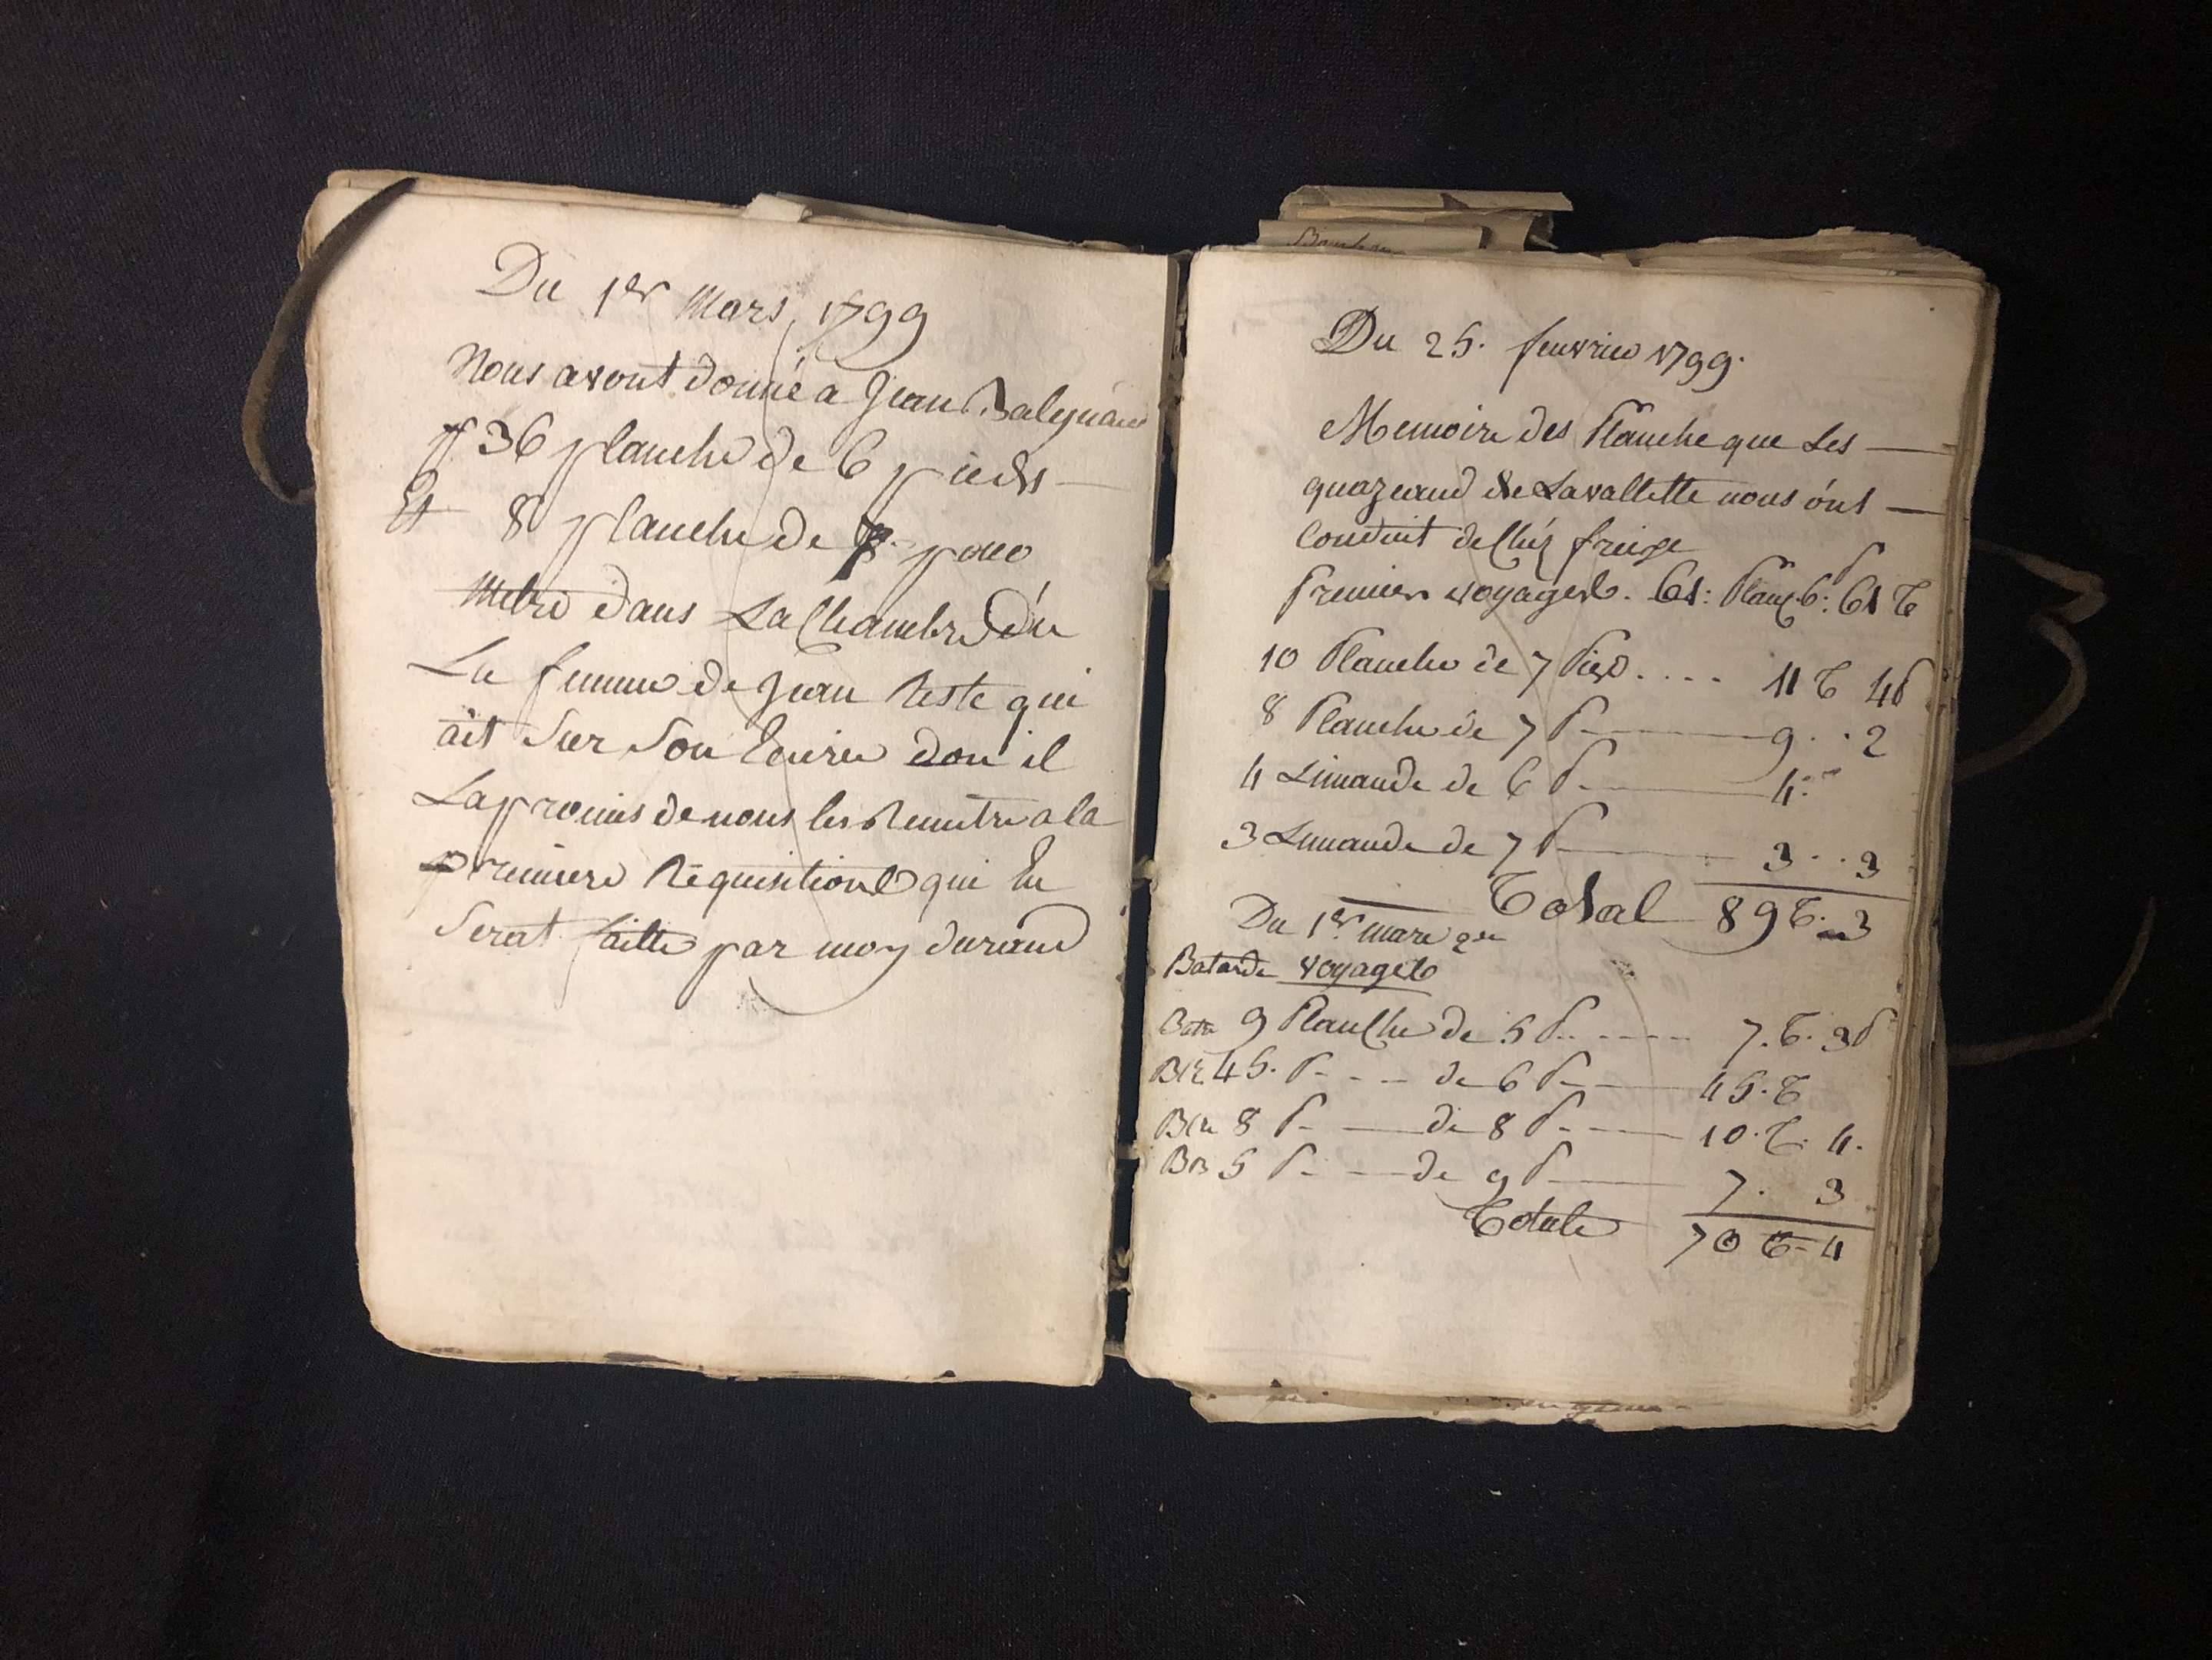 Du 1er Mars, 1799
Nous avont donné a Jean
36 planche de 6 pieds
Et 8 planche de 7 pour
Metre dans La Chambre du
La femme de Jean Reste qui
ait Sur Son
don il
La promis de nous les Remetre a la
premiere Requisition qui lu
Serat faitte par moy durand
Du 25. feuvrier 1799.
Memoire des Planche que Les
de Lavallette nous ónt
Conduit de Chéz
Premier voyage. 61: Planc 6: P 61 T
10 Planche de 7 Pied.... 11 T 4 P
8 Planche de 7 P 9..2
4 Limande de 6 P 4:
3 Limande de 7 P 3..3
Total 89 T. 3
Du 1er mars 2me
Batarde voyage
Bata 9 Planche de 5 P..---- 7. T. 3 P
45. P---- de 6 P 45. T
8 P de 8 P 10. T. 4.
5 P de 9 P 7. 3
Totale 70 T-4